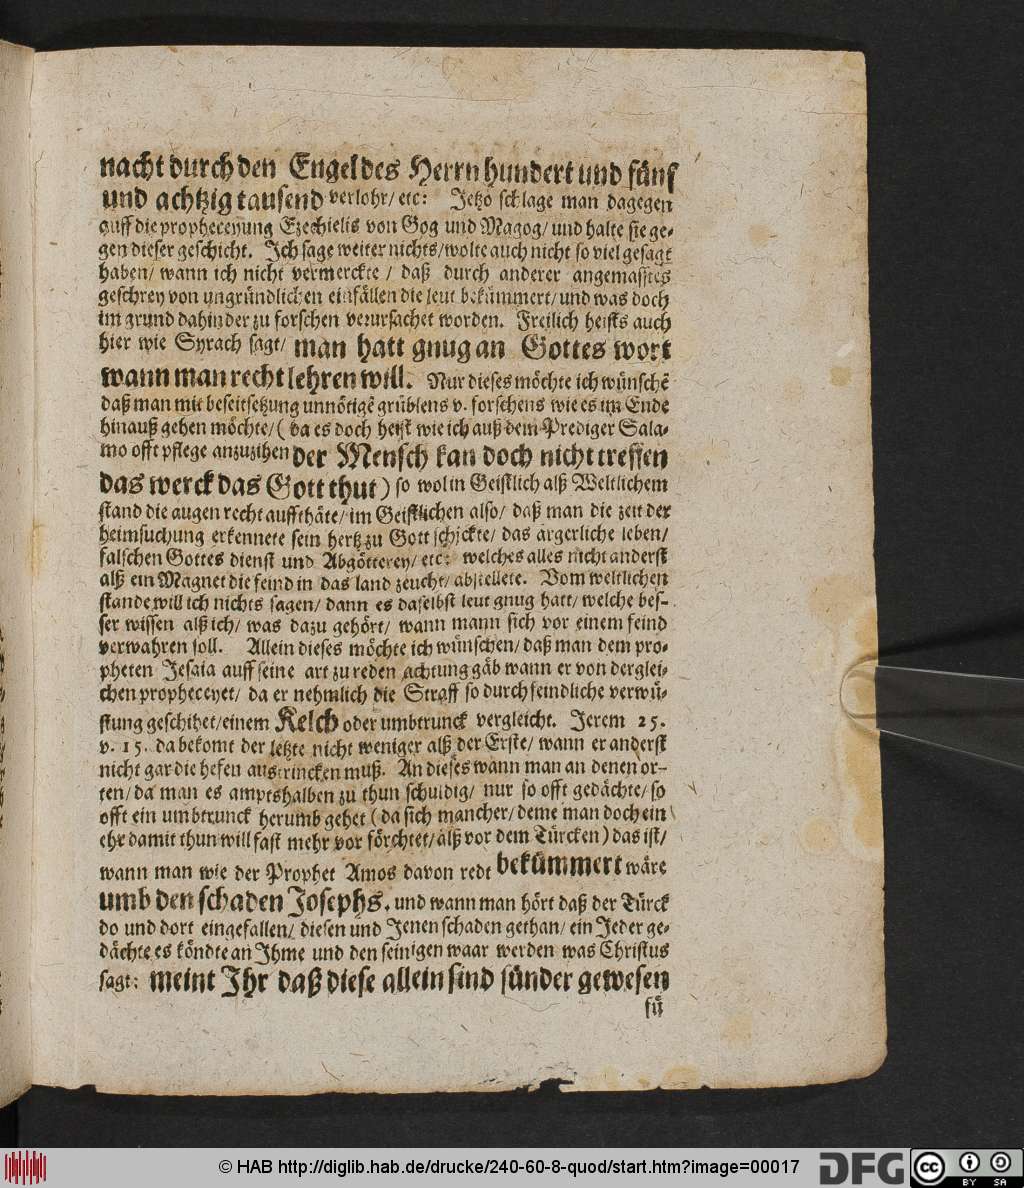 nacht durch den Engel des Herrn hundert und fünf
und achtzig tausend verlohr/ etc: Jetzo schlage man dagegen
auff die propheceyung Ezechielis von Gog und Magog/ und halte sie ge-
gen dieser geschicht. Ich sage weiter nichts/ wolte auch nicht so viel gesagt
haben/ wann ich nicht vermerckte/ daß durch anderer angemasstes
geschrey von ungründlichen einfällen die leut bekümmert/ und was doch
im grund dahinder zu forschen verursachet worden. Freilich heists auch
hier wie Syrach sagt/ man hatt gnug an Gottes wort
wann man recht lehren will. Nur dieses möchte ich wünschẽ
daß man mit beseitsetzung unnötigẽ grüblens v. forschens wie es im Ende
hinauß gehen möchte/ ( da es doch heist wie ich auß dem Prediger Sala-
mo offt pflege anzuzihen der Mensch kan doch nicht treffen
das werck das Gott thut ) so wol in Geistlich alß Weltlichem
stand die augen recht auffthäte/ im Geistlichen also/ daß man die zeit der
heimsuchung erkennete sein hertz zu Gott schickte/ das ärgerliche leben/
falschen Gottes dienst und Abgötterey/ etc: welches alles nicht anderst
alß ein Magnet die feind in das land zeucht/ abstellete. Vom weltlichen
stande will ich nichts sagen/ dann es daselbst leut gnug hatt/ welche bes-
ser wissen alß ich/ was dazu gehört/ wann mann sich vor einem feind
verwahren soll. Allein dieses möchte ich wünschen/ daß man dem pro-
pheten Jesaia auff seine art zu reden achtung gäb wann er von derglei-
chen propheceyet/ da er nehmlich die Straff so durch feindliche verwü-
stung geschihet/ einem Kelch oder umbtrunck vergleicht. Jerem 25.
v. 15. da bekomt der letzte nicht weniger alß der Erste/ wann er anderst
nicht gar die hefen austrincken muß. An dieses wann man an denen or-
ten/ da man es amptshalben zu thun schuldig/ nur so offt gedächte/ so
offt ein umbtrunck herumb gehet ( da sich mancher/ deme man doch ein
ehr damit thun will fast mehr vor förchtet/ alß vor dem Türcken ) das ist/
wann man wie der Prophet Amos davon redt bekümmert wäre
umb den schaden Josephs. und wann man hört daß der Türck
do und dort eingefallen/ diesen und Jenen schaden gethan/ ein Jeder ge-
dächte es köndte an Ihme und den seinigen waar werden was Christus
sagt: meint Ihr daß diese allein sind sünder gewesen
fü
© HAB http://diglib.hab.de/drucke/240-60-8-quod/start.htm?image=00017
DFG
cc BY SA